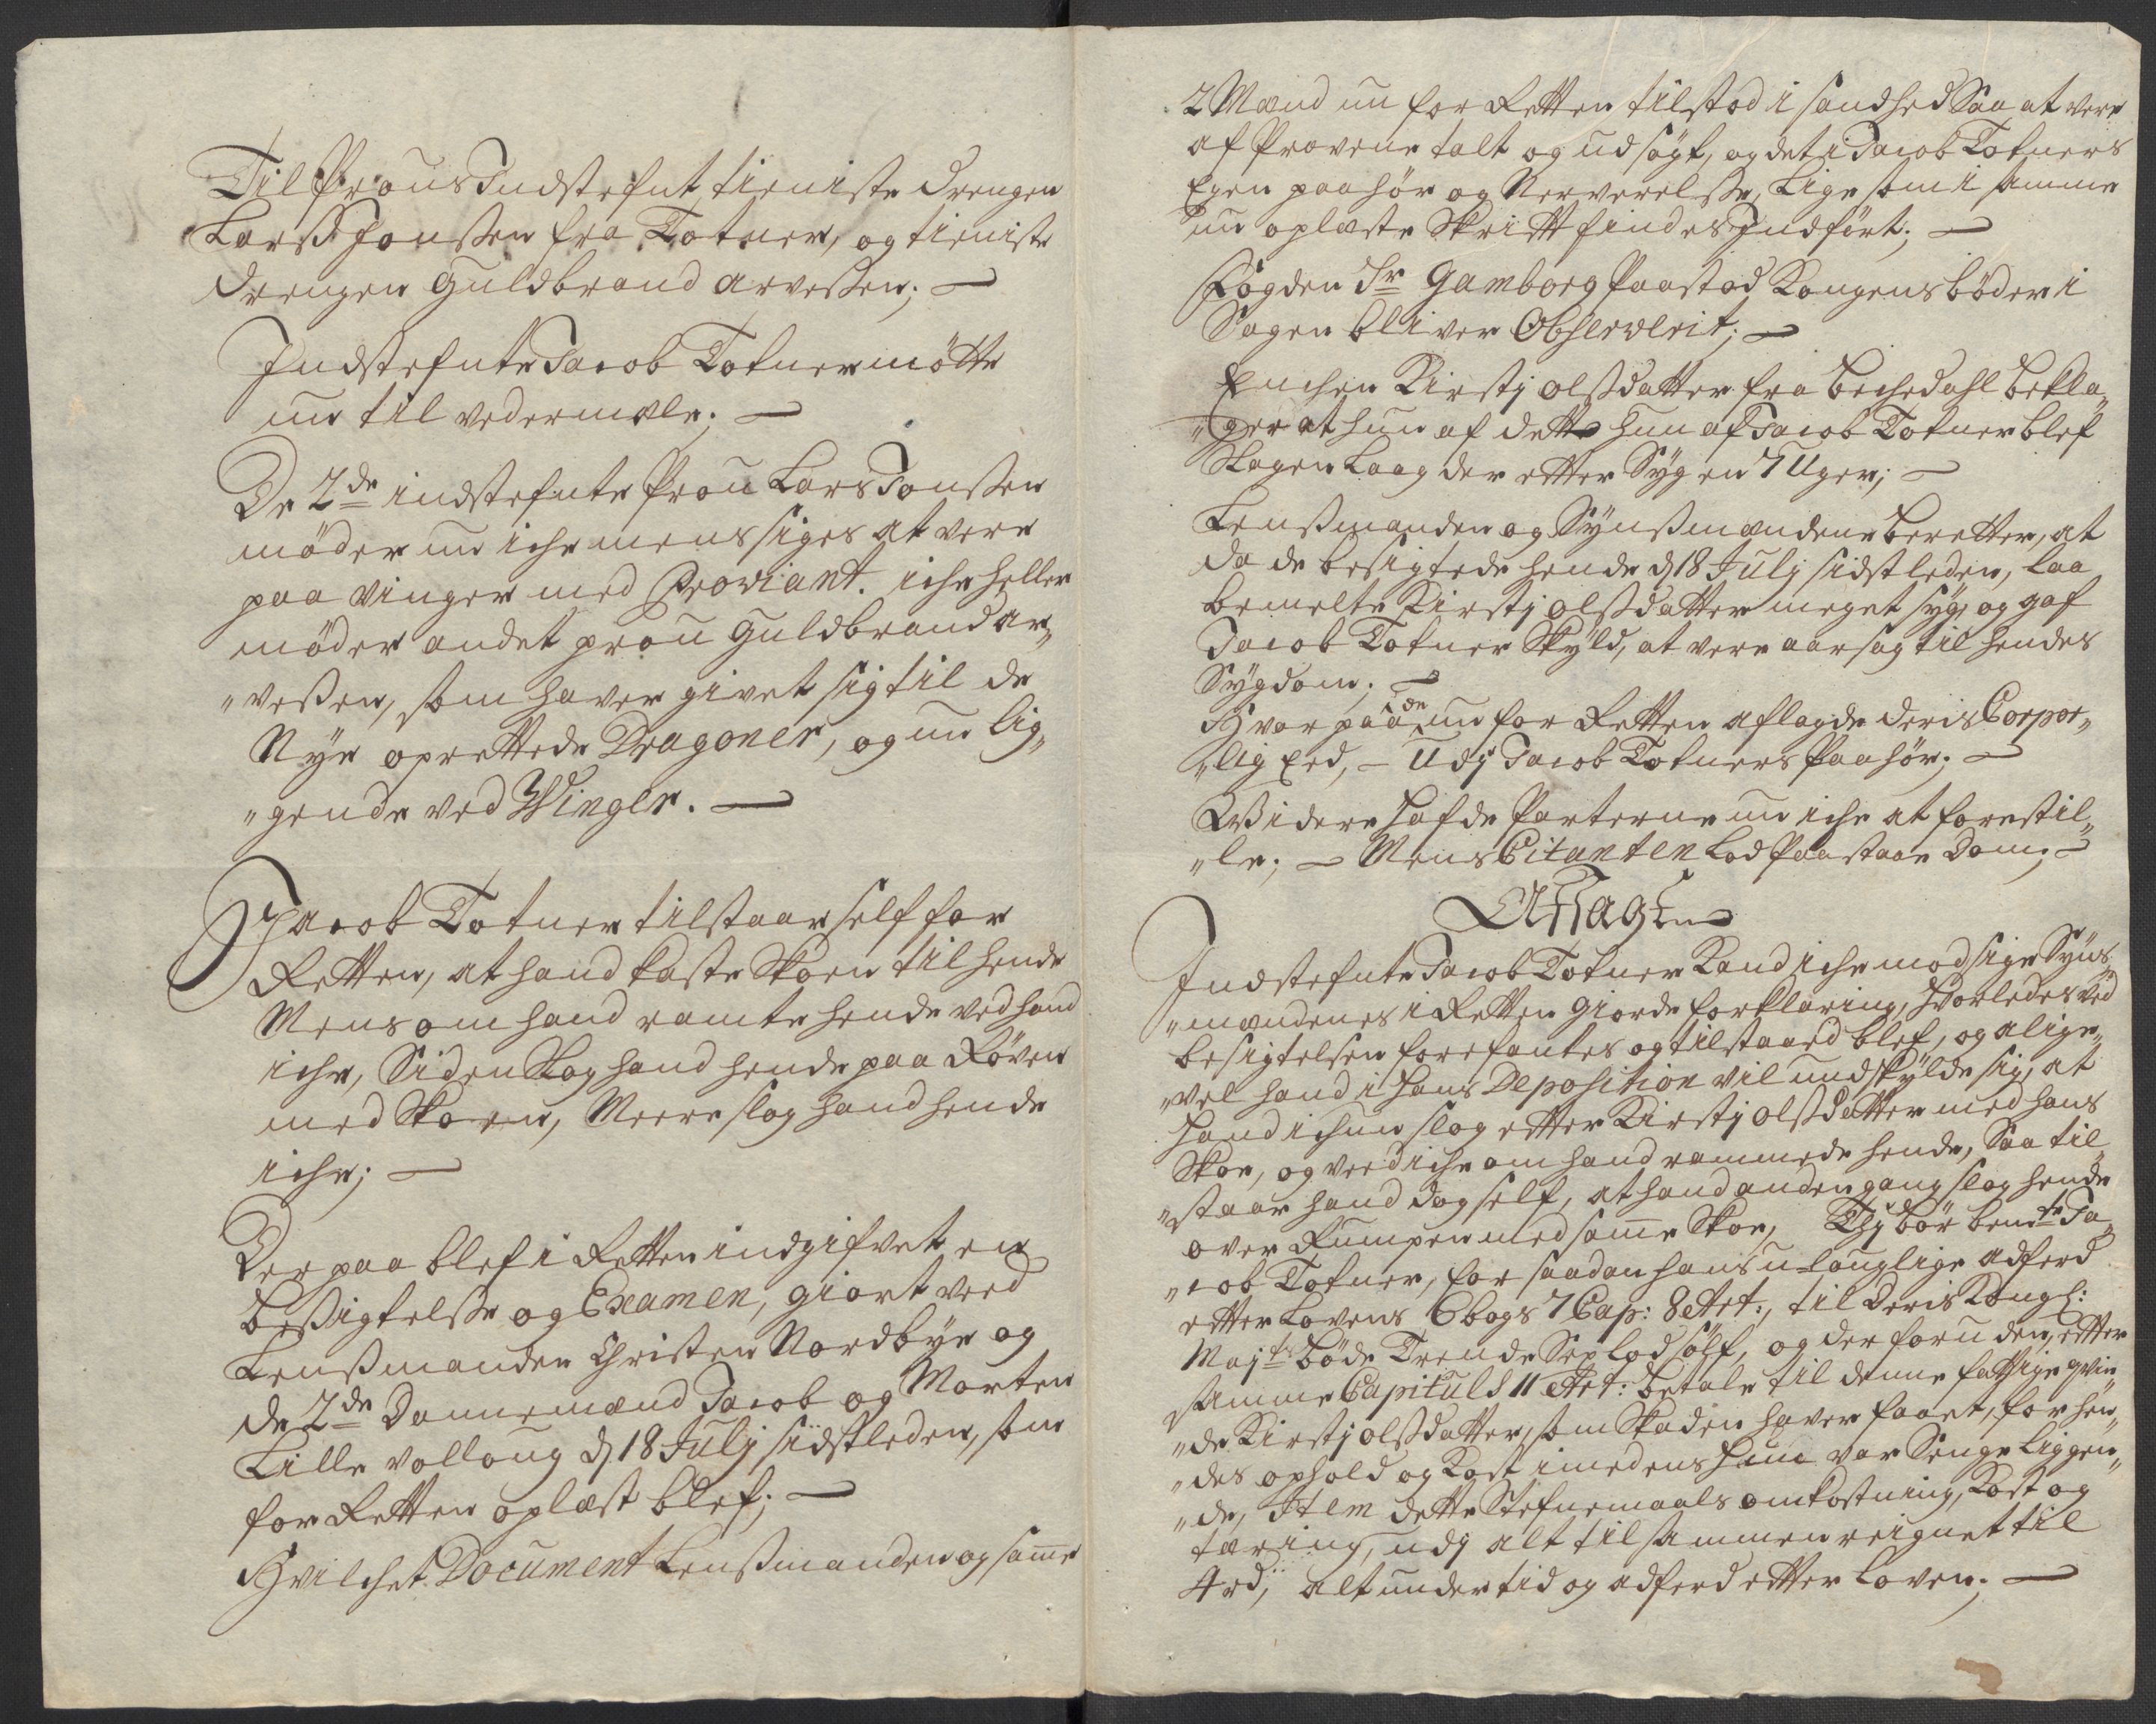 Til Prous Indstefnt, tieniste drengen
Larss Jonssen fra Totner, og tieniste
drengen Guldbrand Arvessen; —
Indstefnte Jacob Totner mötte
nu til vedermæle; —
De 2de indstefnte Prou Lars Jonssen
möder nu iche mens siges at vere
paa Vinger med Proviant. iche heller
möder andet prou Guldbrand Ar„
„vessen, som haver givet sig til de
Nye oprettede Dragoner, og nu lig„
„gende ved Winger. —
Jacob Totner tilstaar self for
Retten, at hand kaste Skoen til hende
Mens om hand ramte hende ved hand
iche, Siden Slog hand hende paa Röven
med Skoen, Meere slog hand hende
iche; —
Der paa blef i Retten indgifvet en
besigtelsse og Examen, giort ved
Lenssmanden Christen Nordbye og
de 2de Dannemænd Jacob og Morten
Lille Volloug d 18 Julj sidstleden, som
for Retten oplæst blef; —
Hvilchet Document Lenssmanden og samme
2 Mænd nu for Retten tilstod i sandhed Saa at vere
af Provene talt og udsögt, og det i Jacob Totners
Egen paahör og Nerverelsse, Lige som i samme
nu oplæste Skrifft findes Indfört; —
Fogden Sr Gamborg Paastod Kongens böder i
Sagen bliver Observerit; —
Enchen Kirstj olssdatter fra bechedahl bekla„
„ger at hun af dette hun af Jacob Totner blef
Slagen Laag der effter Syg en 7 Uger; —
Lenssmanden og Synssmændene beretter, at
da de besigtede hende d 18 Julj sidstleden, laa
bemelte Kirstj olssdatter meget syg, og gaf
Jacob Totner Skyld, at vere aarsag til hendes
Sygdom; —
Hvor paa de nu for Retten aflagde deris Corpor„
„lig Eed, — Udj Jacob Totners Paahör; —
Widere hafde Parterne nu iche at forestil„
„le; — Mens Citanten Lod Paastaae Dom; —
Affsagt
Indstefnte Jacob Totner Kand iche modsige Syns„
„mændenes i Retten giorde forklaring, hvorledes ved
besigtelsen forefantes og tilstaaed blef, og alige„
„vel hand i hans Deposition vil undskylde sig, at
hand ichun slog effter Kirstj olssdatter med hans
Skoe, og veed iche om hand rammede hende, Saa til„
„staar hand dog self, at hand anden gang slog hende
over Rumpen med samme Skoe, Thj bör bemte Ja„
„cob Totner, for saadan hans ulouglige adferd
effter Lovens 6 bogs 7 Cap: 8 Art:, til Deris Kongl:
Majts böde Trende Sex lod sölf, og der foruden, effter
samme Capituls 11 Art: betale til denne fattige qvin„
„de Kirstj olssdatter, som Skaden haver faaet, for hen„
„des ophold og Kost imedens hun var Senge liggen„
„de, Item dette Stefnemaals omkostning, Kost og
tæring, udj alt tilsammen reignet til
4 rd, alt under tid og adferd effter Loven; —